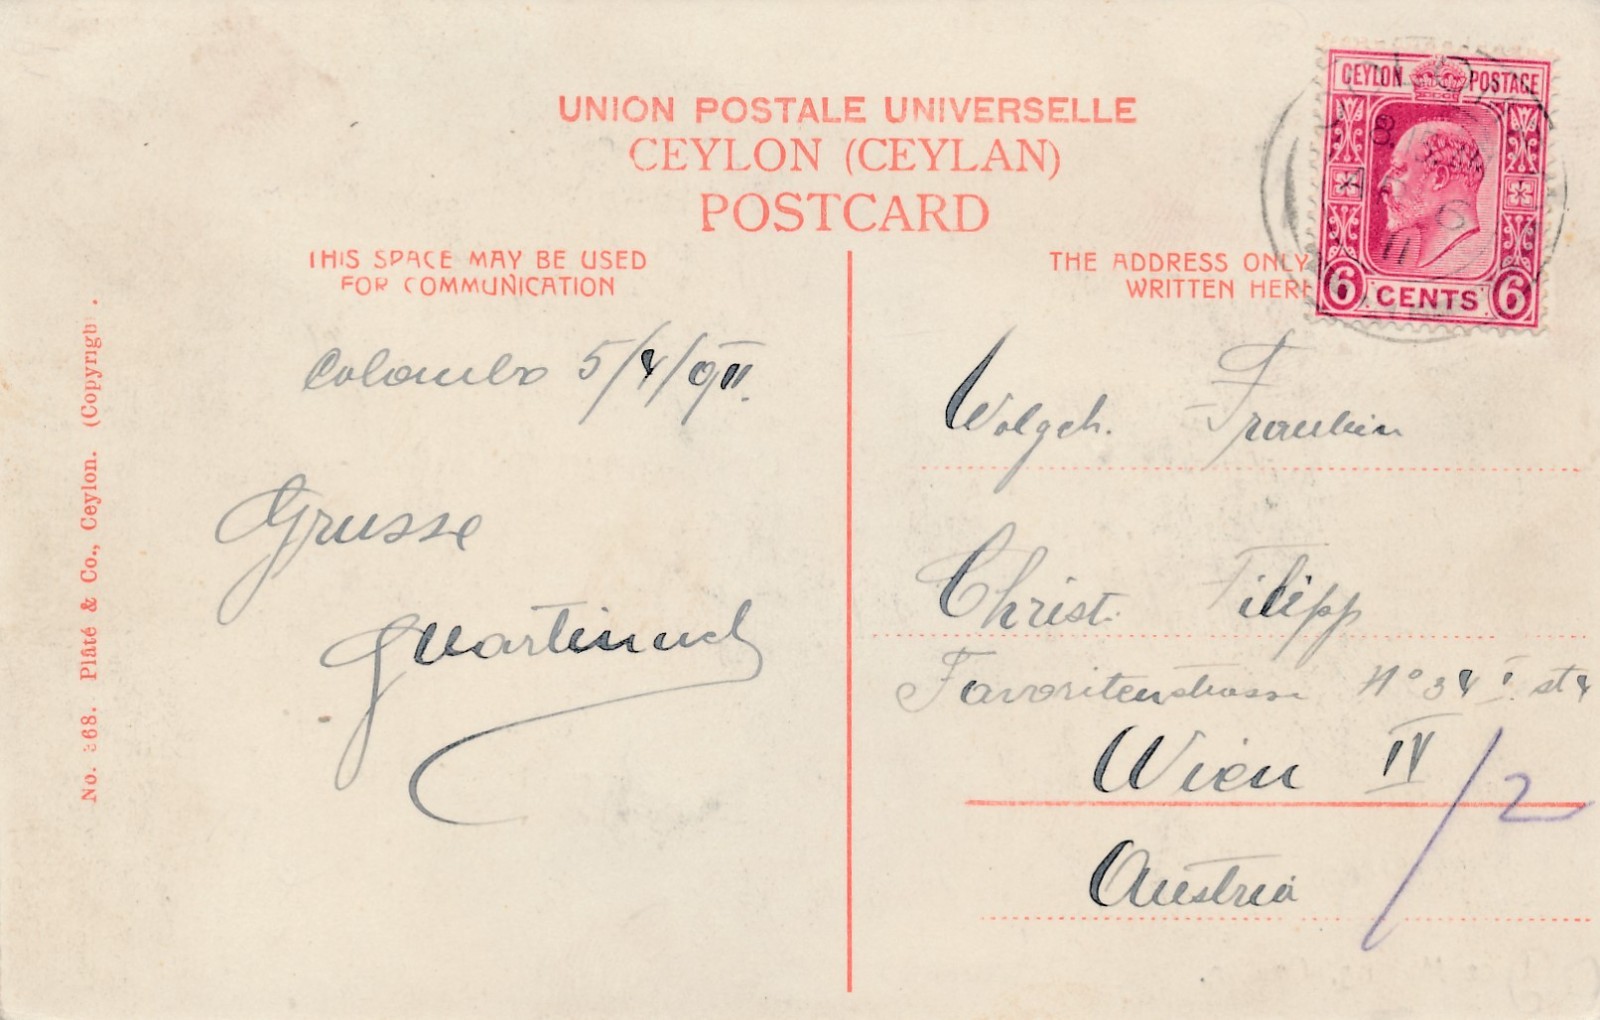 UNION POSTALE UNIVERSELLE
CEYLON (CEYLAN)
POSTCARD
THIS SPACE MAY BE USED
FOR COMMUNICATION
THE ADDRESS ONLY
WRITTEN HERE
CEYLON POSTAGE
6 CENTS 6
8
AP 6
11
Colombo 5/4/911.
Grüsse
Wolgeb. Fraulein
Christ. Filipp
Favoritenstrasse No 34 I. st 4
Wien IV
/2
Austria
No. 368. Plâté & Co., Ceylon. (Copyright.